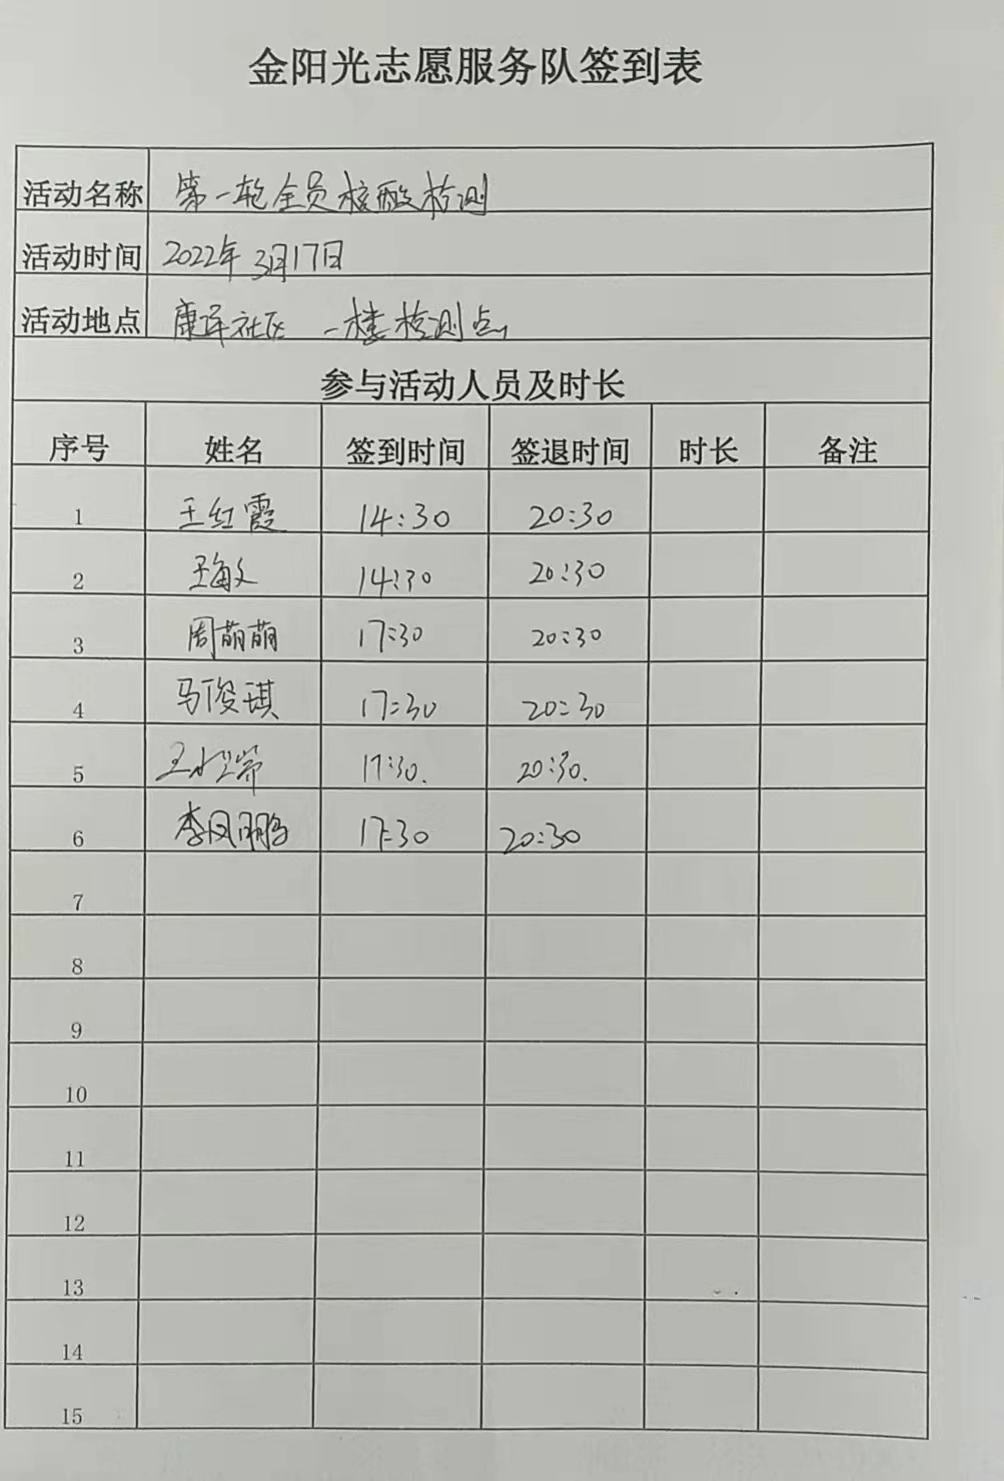 金阳光志愿服务队签到表
活动名称 第一轮全员核酸检测
活动时间 2022年3月17日
活动地点 康泽社区 一楼检测点
参与活动人员及时长
序号 姓名 签到时间 签退时间 时长 备注
1 王红霞 14:30 20:30
2 王敏 14:30 20:30
3 周萌萌 17:30 20:30
4 马俊琪 17:30 20:30
5 王 17:30. 20:30.
6 李凤鹏 17:30 20:30
7
8
9
10
11
12
13
14
15